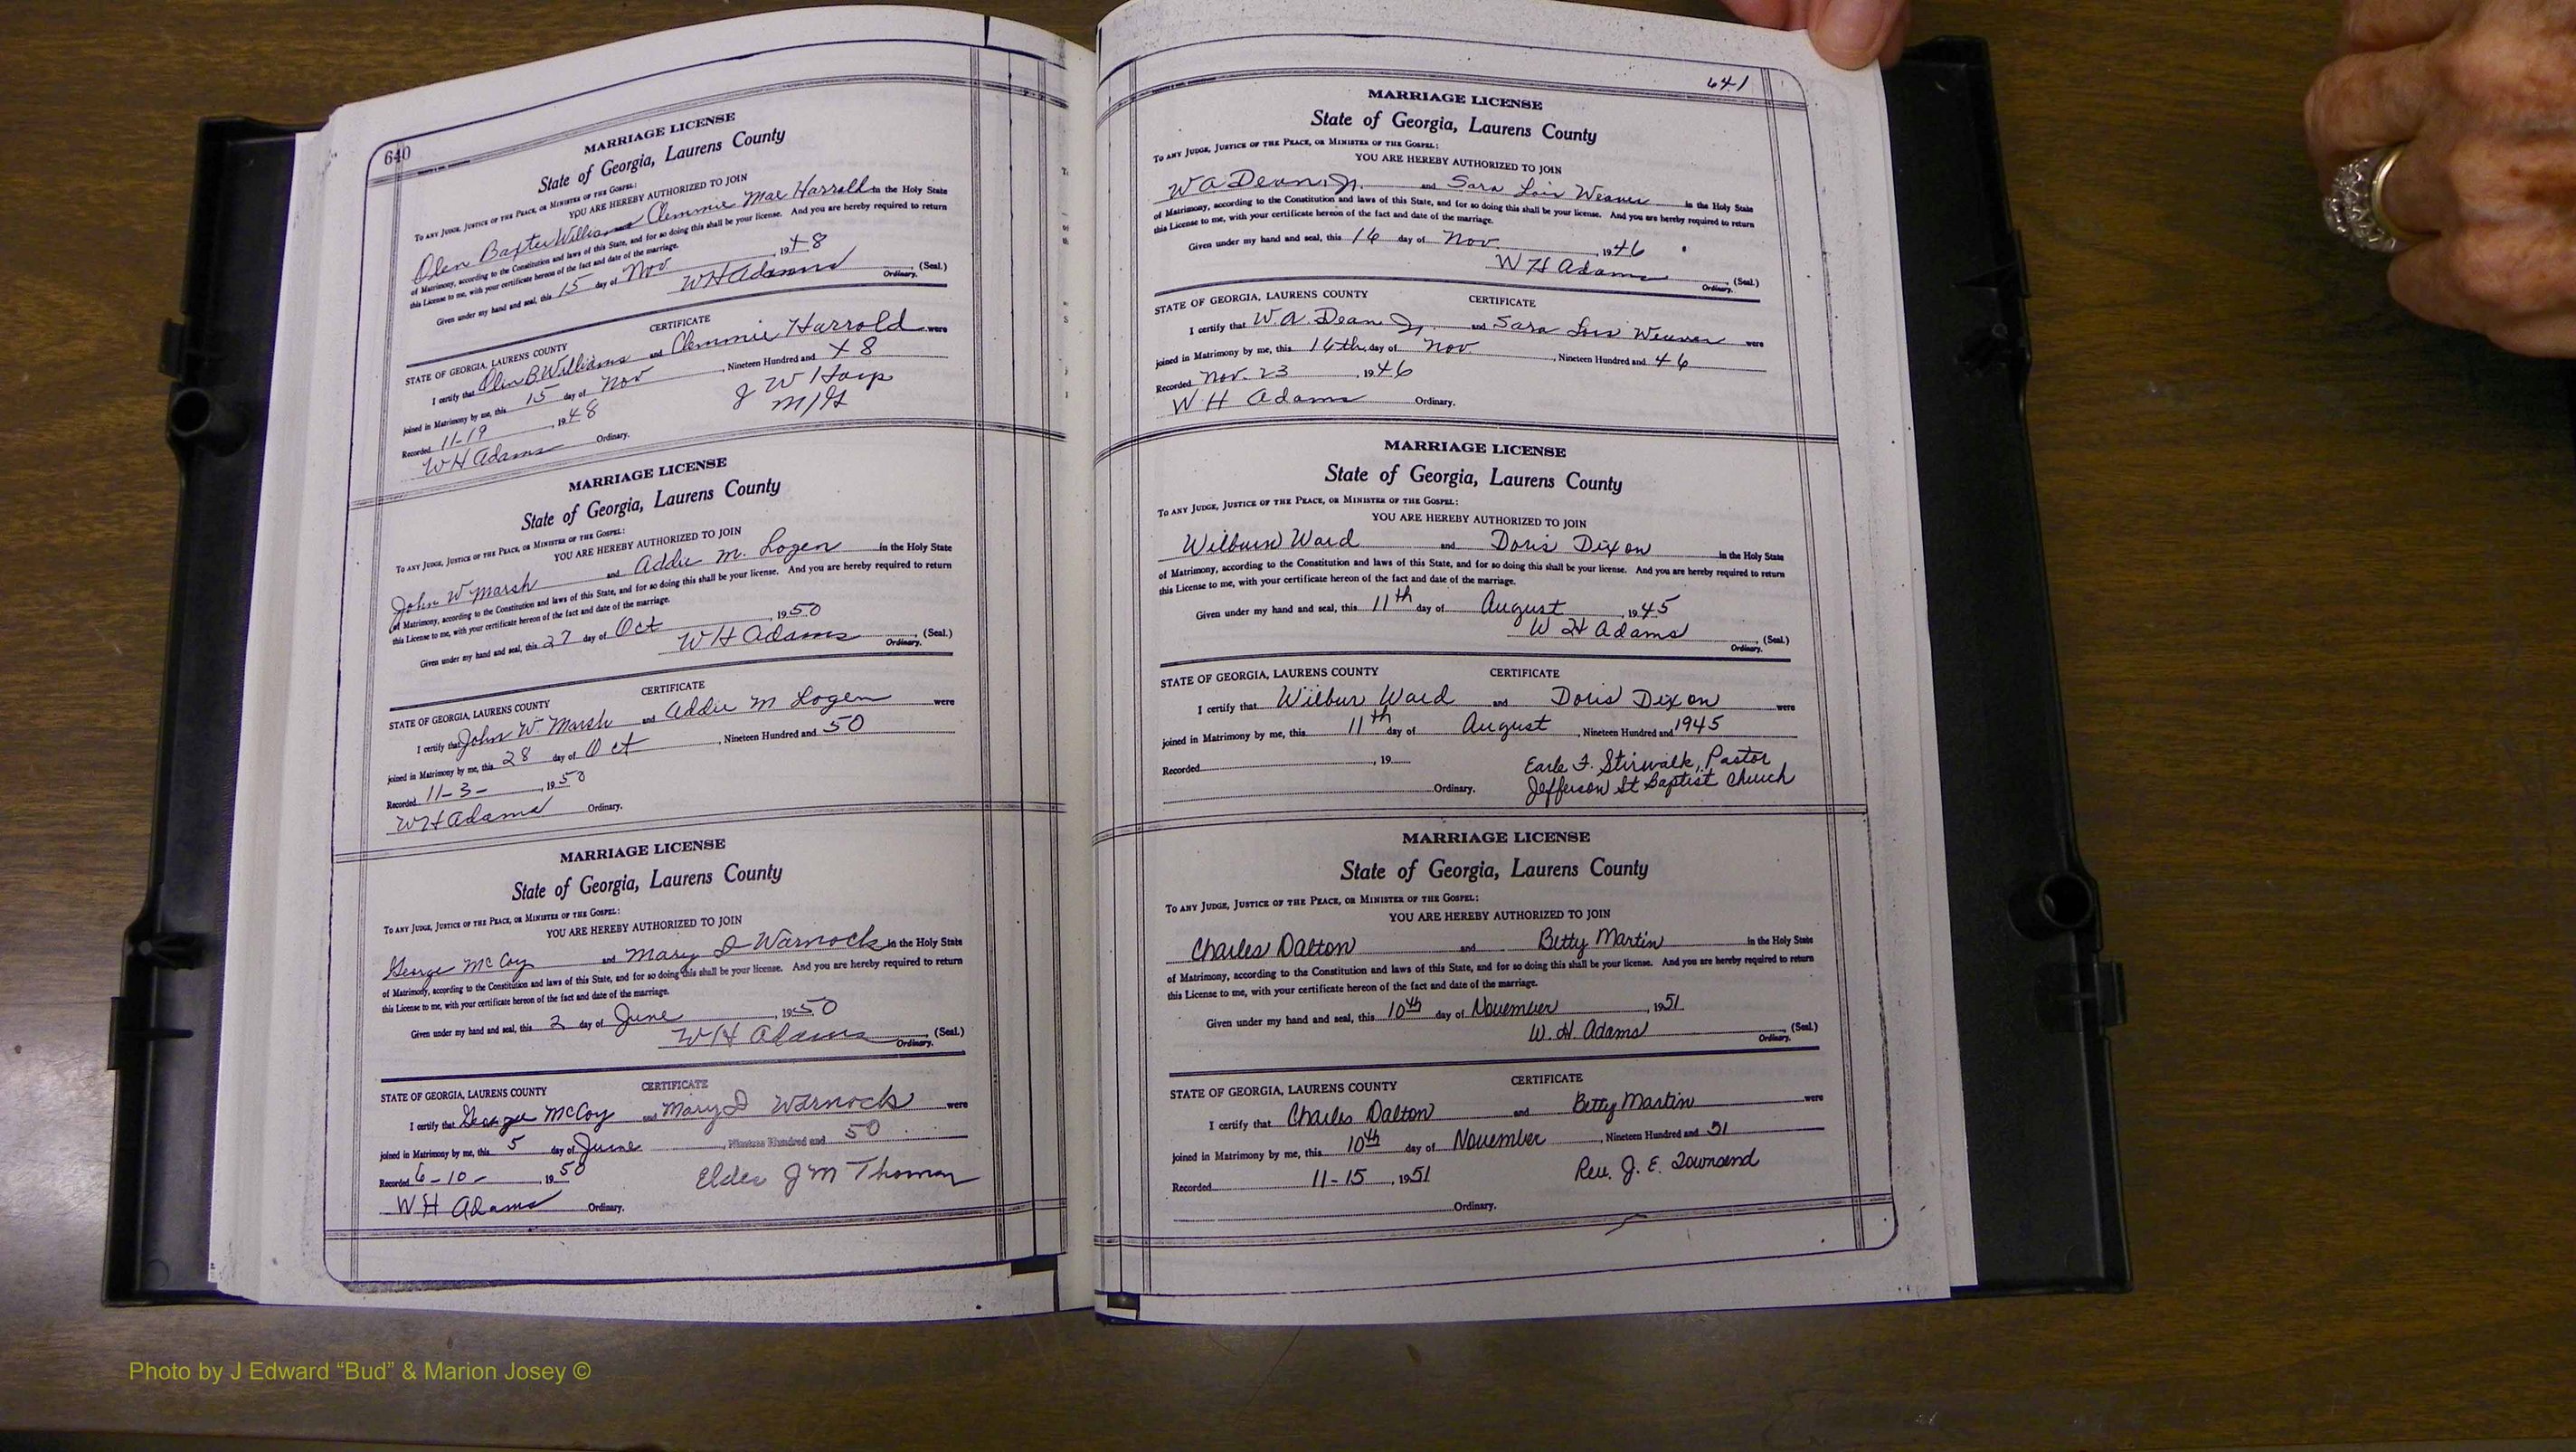 640
MARRIAGE LICENSE
State of Georgia, Laurens County
To any Judge, Justice of the Peace, or Minister of the Gospel:
YOU ARE HEREBY AUTHORIZED TO JOIN
Olen Baxter Williams and Clemmie Mae Harrold in the Holy State
of Matrimony, according to the Constitution and laws of this State, and for so doing this shall be your license. And you are hereby required to return
this License to me, with your certificate hereon of the fact and date of the marriage.
Given under my hand and seal, this 15 day of Nov, 1948
W H Adams (Seal.)
Ordinary.
CERTIFICATE
STATE OF GEORGIA, LAURENS COUNTY
I certify that Olen B. Williams and Clemmie Harrold were
joined in Matrimony by me, this 15 day of Nov, Nineteen Hundred and 48
Recorded 11-19, 1948
J W Harp
M/G
W H Adams Ordinary.
MARRIAGE LICENSE
State of Georgia, Laurens County
To any Judge, Justice of the Peace, or Minister of the Gospel:
YOU ARE HEREBY AUTHORIZED TO JOIN
John W Marsh and Addie M. Logen in the Holy State
of Matrimony, according to the Constitution and laws of this State, and for so doing this shall be your license. And you are hereby required to return
this License to me, with your certificate hereon of the fact and date of the marriage.
Given under my hand and seal, this 27 day of Oct, 1950
W H Adams (Seal.)
Ordinary.
CERTIFICATE
STATE OF GEORGIA, LAURENS COUNTY
I certify that John W. Marsh and Addie M Logen were
joined in Matrimony by me, this 28 day of Oct, Nineteen Hundred and 50
Recorded 11-3-, 1950
W H Adams Ordinary.
MARRIAGE LICENSE
State of Georgia, Laurens County
To any Judge, Justice of the Peace, or Minister of the Gospel:
YOU ARE HEREBY AUTHORIZED TO JOIN
George McCoy and Mary D Warnock in the Holy State
of Matrimony, according to the Constitution and laws of this State, and for so doing this shall be your license. And you are hereby required to return
this License to me, with your certificate hereon of the fact and date of the marriage.
Given under my hand and seal, this 2 day of June, 1950
W H Adams (Seal.)
Ordinary.
CERTIFICATE
STATE OF GEORGIA, LAURENS COUNTY
I certify that George McCoy and Mary D Warnock were
joined in Matrimony by me, this 5 day of June, Nineteen Hundred and 50
Recorded 6-10-, 1950
Elder J M Thomas
W H Adams Ordinary.
641
MARRIAGE LICENSE
State of Georgia, Laurens County
To any Judge, Justice of the Peace, or Minister of the Gospel:
YOU ARE HEREBY AUTHORIZED TO JOIN
W A Dean, Jr. and Sara Lois Weaver in the Holy State
of Matrimony, according to the Constitution and laws of this State, and for so doing this shall be your license. And you are hereby required to return
this License to me, with your certificate hereon of the fact and date of the marriage.
Given under my hand and seal, this 16 day of Nov., 1946
W H Adams (Seal.)
Ordinary.
STATE OF GEORGIA, LAURENS COUNTY CERTIFICATE
I certify that W. A. Dean Jr. and Sara Lois Weaver were
joined in Matrimony by me, this 16th day of Nov., Nineteen Hundred and 46
Recorded Nov. 23, 1946
W H Adams Ordinary.
MARRIAGE LICENSE
State of Georgia, Laurens County
To any Judge, Justice of the Peace, or Minister of the Gospel:
YOU ARE HEREBY AUTHORIZED TO JOIN
Wilburn Ward and Doris Dixon in the Holy State
of Matrimony, according to the Constitution and laws of this State, and for so doing this shall be your license. And you are hereby required to return
this License to me, with your certificate hereon of the fact and date of the marriage.
Given under my hand and seal, this 11th day of August, 1945
W H Adams (Seal.)
Ordinary.
STATE OF GEORGIA, LAURENS COUNTY CERTIFICATE
I certify that Wilbur Ward and Doris Dixon were
joined in Matrimony by me, this 11th day of August, Nineteen Hundred and 1945
Recorded, 19
Earle F. Stirwalk, Pastor
Jefferson St Baptist Church
Ordinary.
MARRIAGE LICENSE
State of Georgia, Laurens County
To any Judge, Justice of the Peace, or Minister of the Gospel:
YOU ARE HEREBY AUTHORIZED TO JOIN
Charles Dalton and Betty Martin in the Holy State
of Matrimony, according to the Constitution and laws of this State, and for so doing this shall be your license. And you are hereby required to return
this License to me, with your certificate hereon of the fact and date of the marriage.
Given under my hand and seal, this 10th day of November, 1951
W. H. Adams (Seal.)
Ordinary.
STATE OF GEORGIA, LAURENS COUNTY CERTIFICATE
I certify that Charles Dalton and Betty Martin were
joined in Matrimony by me, this 10th day of November, Nineteen Hundred and 51
Recorded 11-15, 1951
Rev. J. E. Townsend
Ordinary.
Photo by J Edward “Bud” & Marion Josey ©